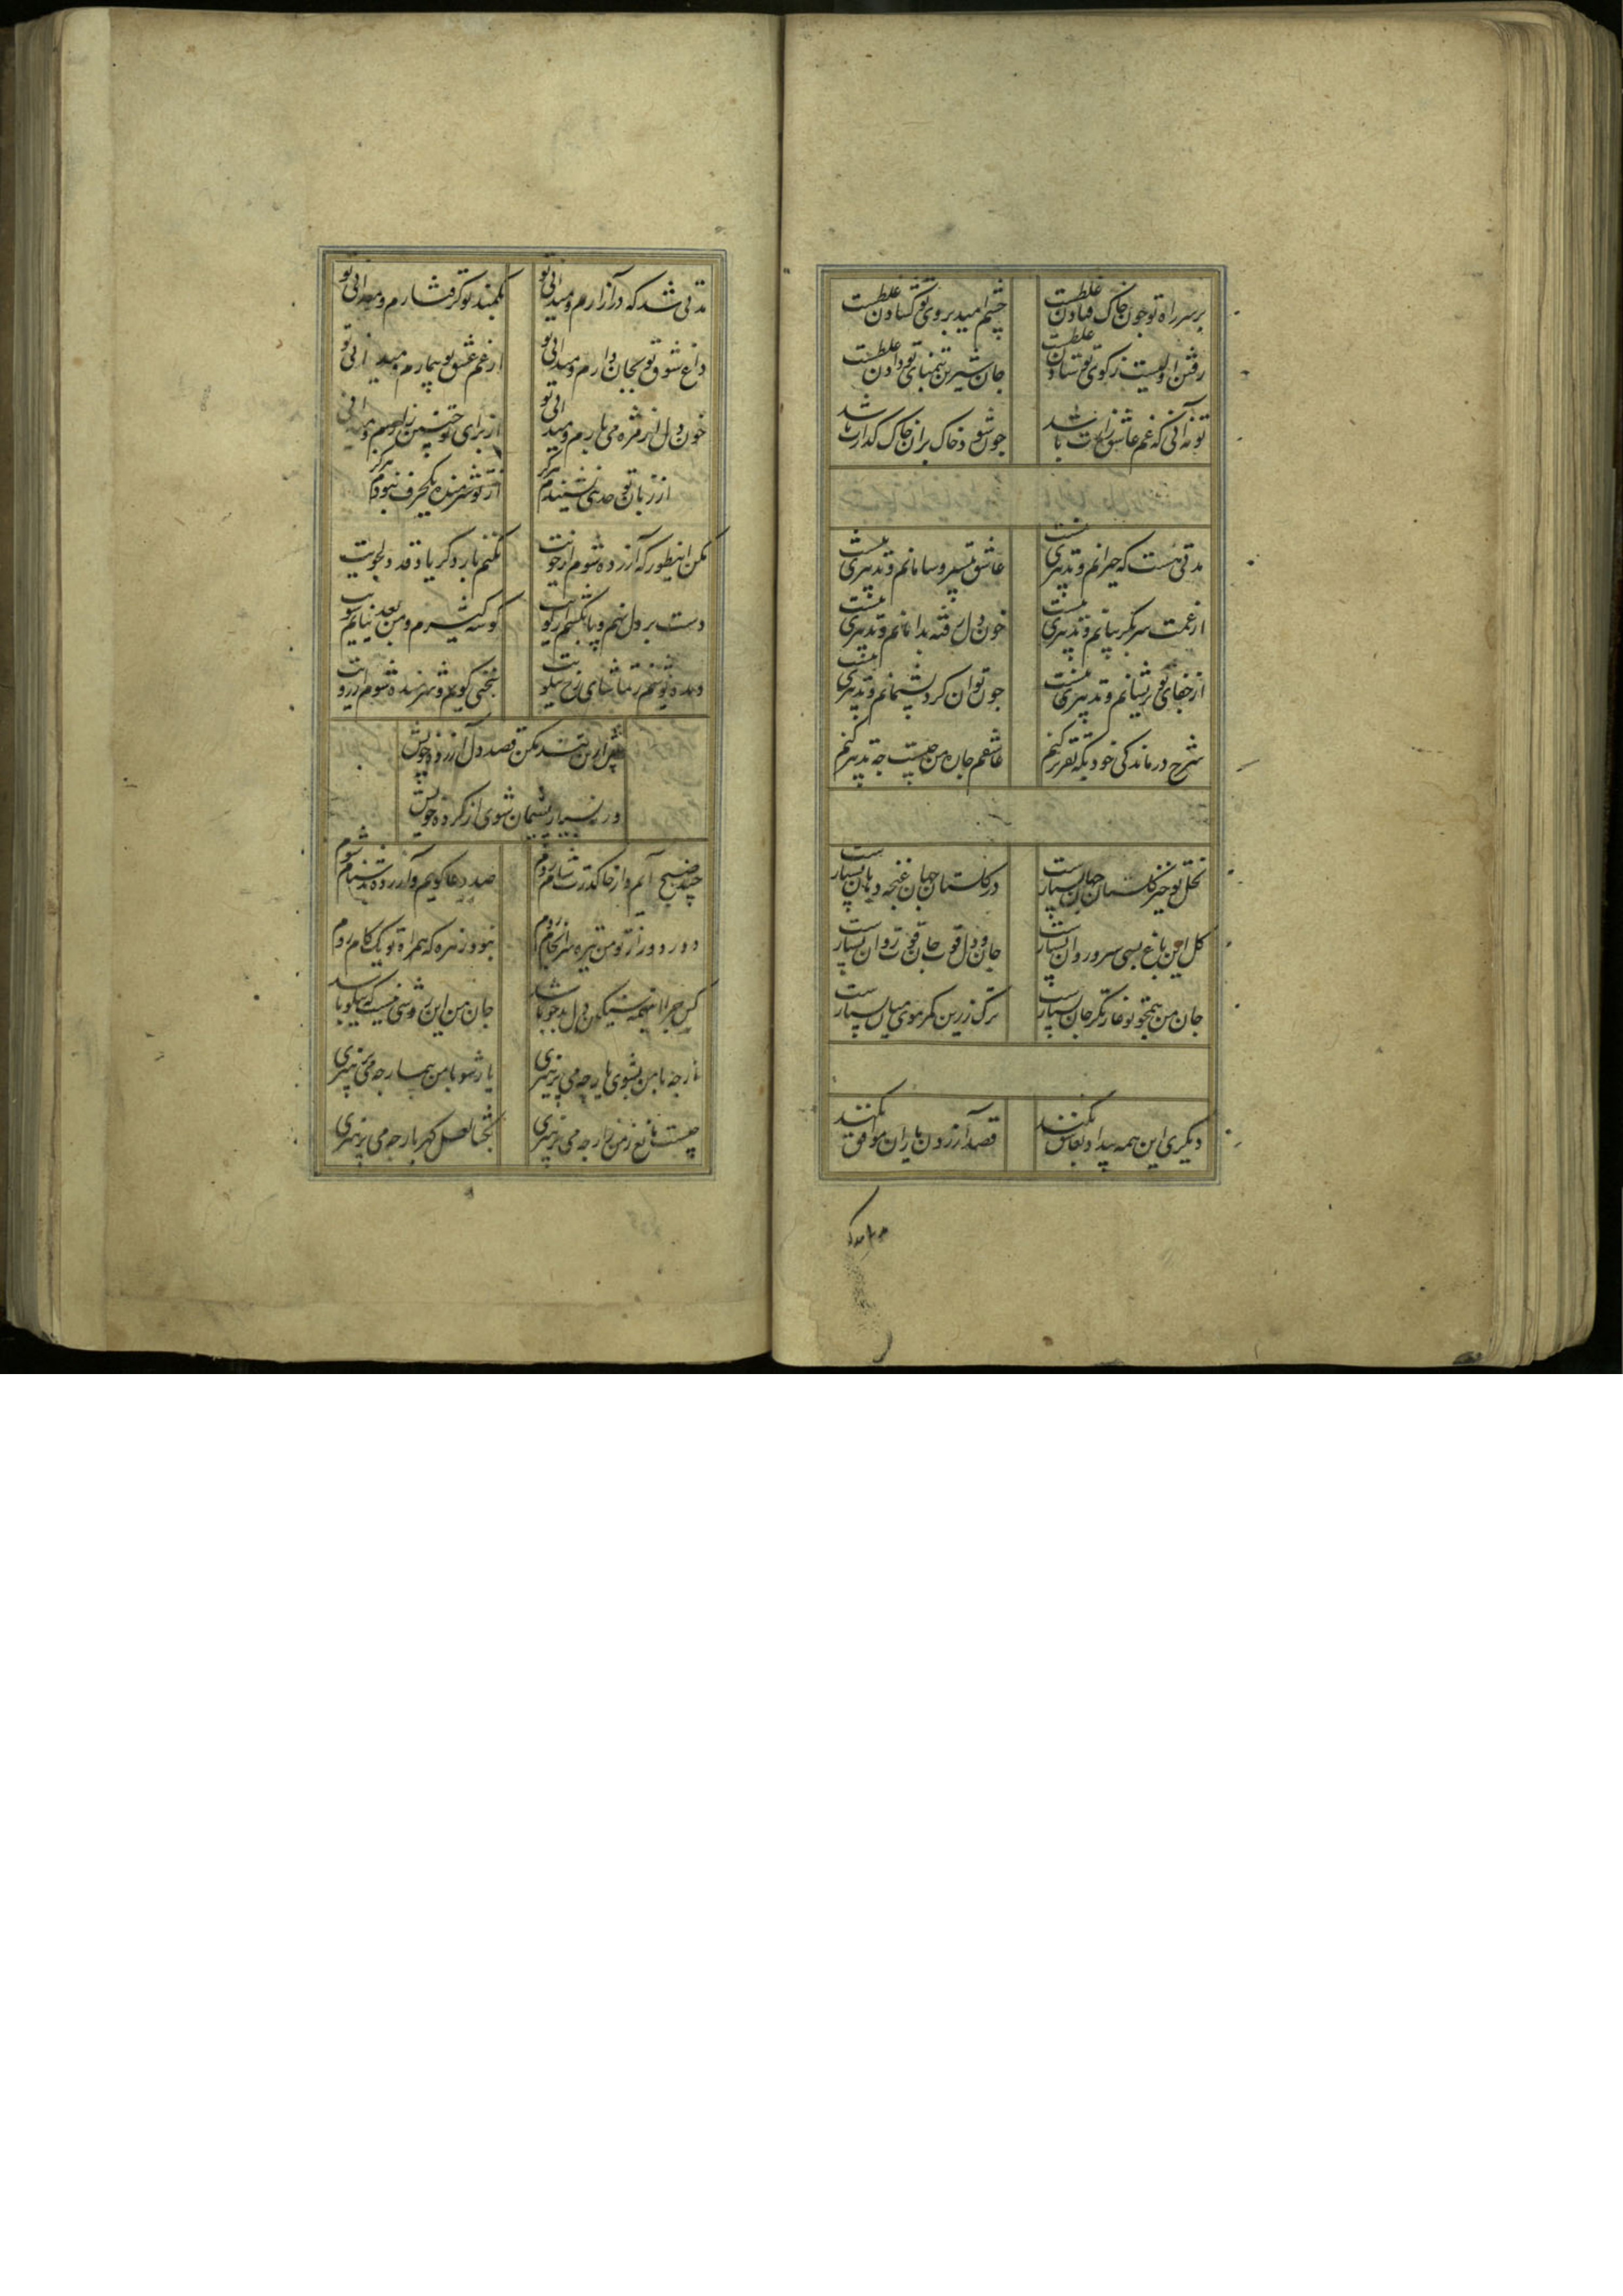 بر سر راه تو چون خاک فتادن غلطست چشم امید بروی تو کشادن غلطست
رفتن اولیست ز کوی تو ستادن غلطست جان شیرین بتمنای تو دادن غلطست
تو نه آنی که غم عاشق زارت باشد چون شود خاک بران خاک کذارت باشد
مدتی هست که حیرانم و تدبیری نیست عاشق بیسر و سامانم و تدبیری نیست
از غمت سر بکریبانم و تدبیری نیست خون دل رفته بدامانم و تدبیری نیست
از جفای تو پریشانم و تدبیری نیست چون توان کرد پشیمانم و تدبیری نیست
شرح درماندکی خود بکه تقریر کنم عاشقم جان من چیست چه تدبیر کنم
نخل نوخیز کلستان جهان بسیارست در کلستان جهان غنچه دهان بسیارست
کل این باغ بسی سرو روان بسیارست جان و دل قوت جان قوت روان بسیارست
جان من همچو تو غارتکر جان بسیارست ترک زرین کمر موی میان بسیارست
دیکری این همه بیداد بعاشق نکند قصد آزردن یاران موافق نکند
مدتی شد که در آزارم و میدانی تو بکمند تو کرفتارم و میدانی تو
داغ شوق تو بجان دارم و میدانی تو از غم عشق تو بیمارم و میدانی تو
خون دل از مژه می بارم و میدانی تو از برای تو چنین زارم و میدانی
از زبان تو حدیثی نشنیدم هرکز از تو شرمنده یکحرف نبودم هرکز
مکن اینطور که آزرده شوم از خویت نکنم بار دکر یاد قد دلجویت
دست بر دل نهم و پا بکشم از کویت کوشه کیرم و من بعد نیایم سویت
دیده پوشم ز تماشای رخ نیکویت سخنی کویم و شرمنده شوم از رویت
پیش ازین تند مکن قصد دل آزرده خویش
ورنه بسیار پشیمان شوی از کرده خویش
چند صبح آیم و از خاک درت شام روم صد دعا کویم و آزرده بدشنام شوم
دور دور از تو من تیره سرانجام روم نبود زهره که همراه تو یک کام روم
کس چرا اینهمه سنکین دل بدخو باشد جان من این روشی نیست که نیکو باشد
از چه با من نشوی یار چه می پرهیزی یار شو با من بیمار چه می پرهیزی
چیست مانع ز من زار چه می پرهیزی بکشا لعل کهربار چه می پرهیزی